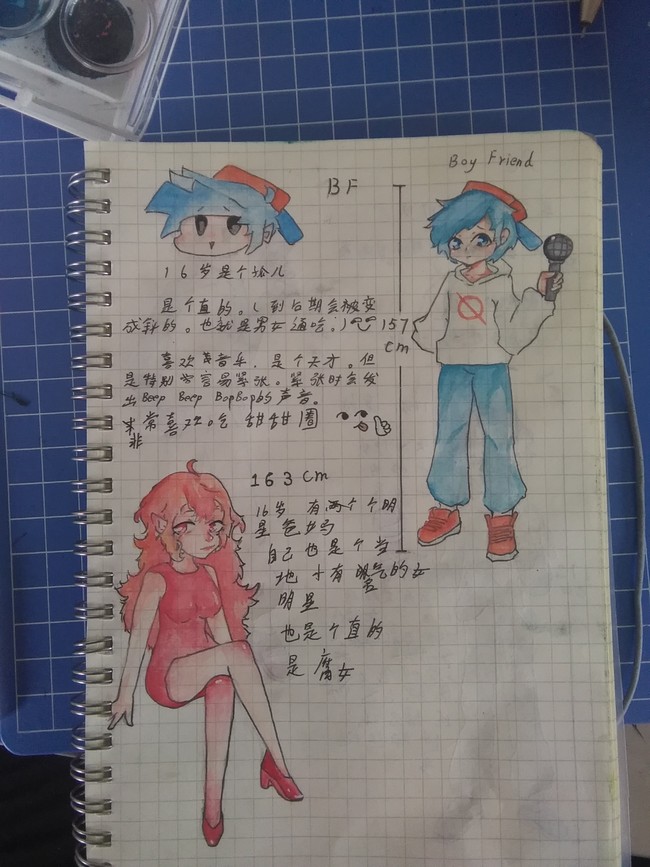 BF
Boy Friend
16岁是个孤儿
是个直的。(到后期会被变
成斜的。也就是男女通吃。)
157
cm
喜欢音乐,是个天才。但
是特别容易紧张。紧张时会发
出Beep Beep BopBop的声音。
非常喜欢吃 甜甜圈
163 cm
16岁 有两个个明
星爸妈
自己也是个当
地 小有 名气的女
明星
也是个直的
是 腐女